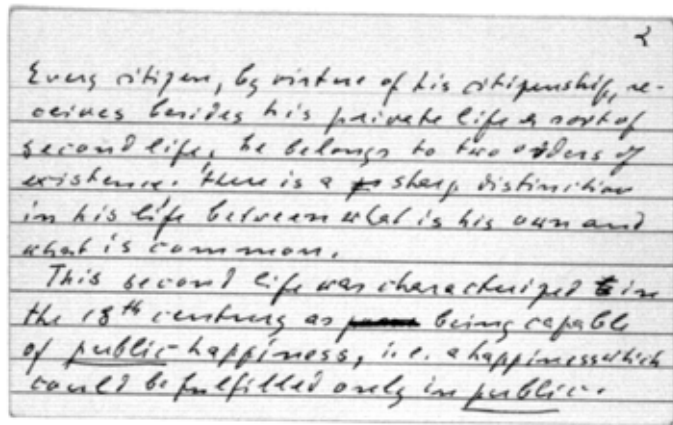 2
Every citizen, by virtue of his citizenship, re-
ceives besides his private life a sort of
second life, he belongs to two orders of
existence. There is a sharp distinction
in his life between what is his own and
what is common.
This second life was characterized in
the 18th century as being capable
of public happiness, i.e. a happiness which
could be fulfilled only in public.